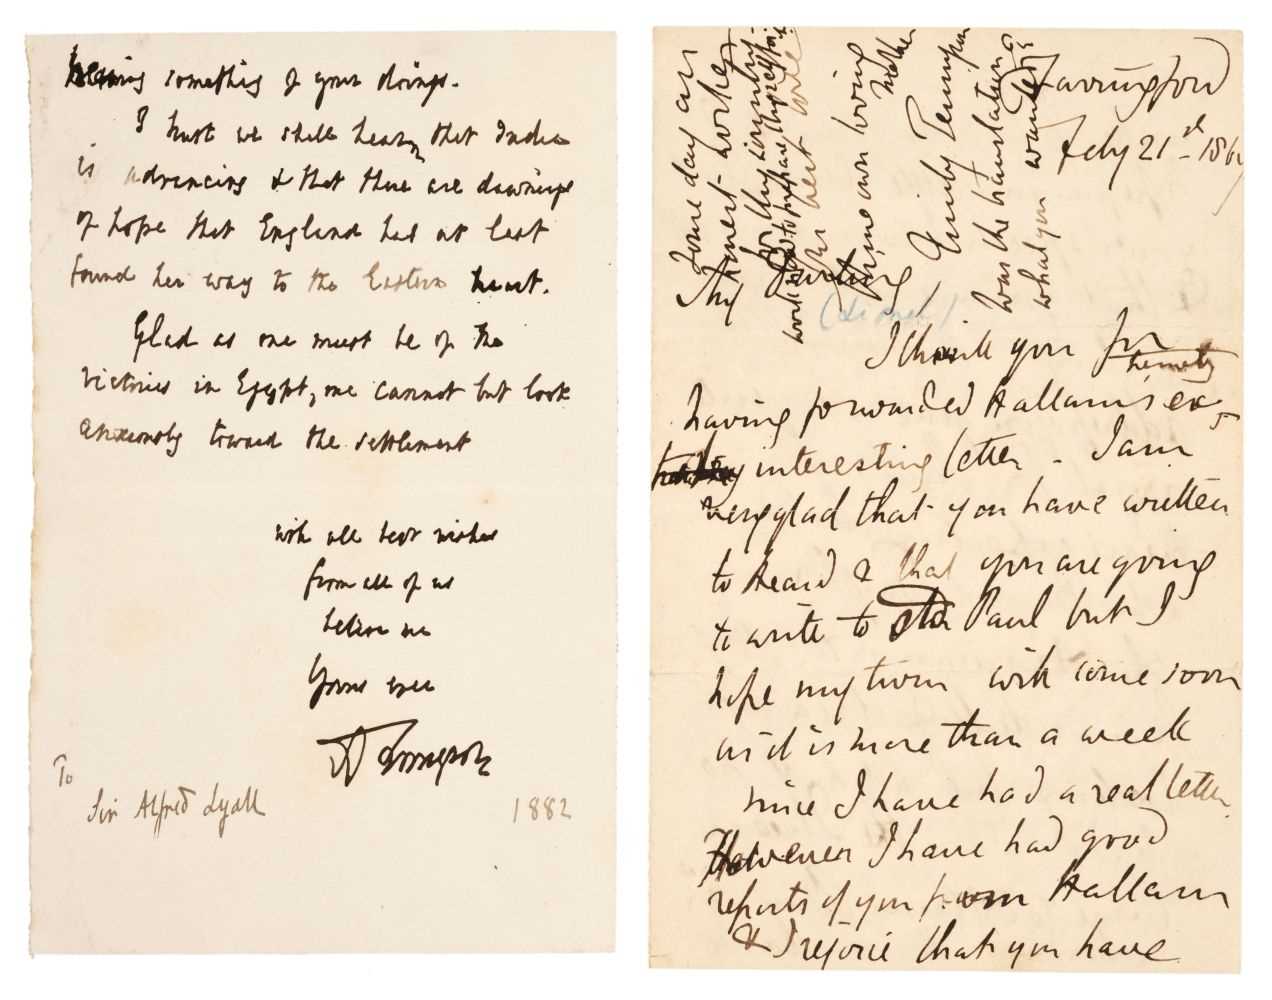 hearing something of your doings.
I trust we shall hear that India
is advancing & that there are dawnings
of hope that England has at last
found her way to the Eastern heart.
Glad as one must be of the
victories in Egypt, one cannot but look
anxiously toward the settlement
with all best wishes
from all of us
believe me
Yours ever
A Tennyson
To
Sir Alfred Lyall
1882
Farringford
Feby 21st 186
My Darling
(Lionel)
I thank you for
having forwarded Hallam's ex-
tremely
interesting letter - I am
very glad that you have written
to Heard & that you are going
to write to Paul but I
hope my turn will come soon
as it is more than a week
since I have had a real letter
However I have had good
reports of you from Hallam
& I rejoice that you have
some day an
honest worker
thine own loving
mother
Emily Tennyson
was the translation
what you wanted